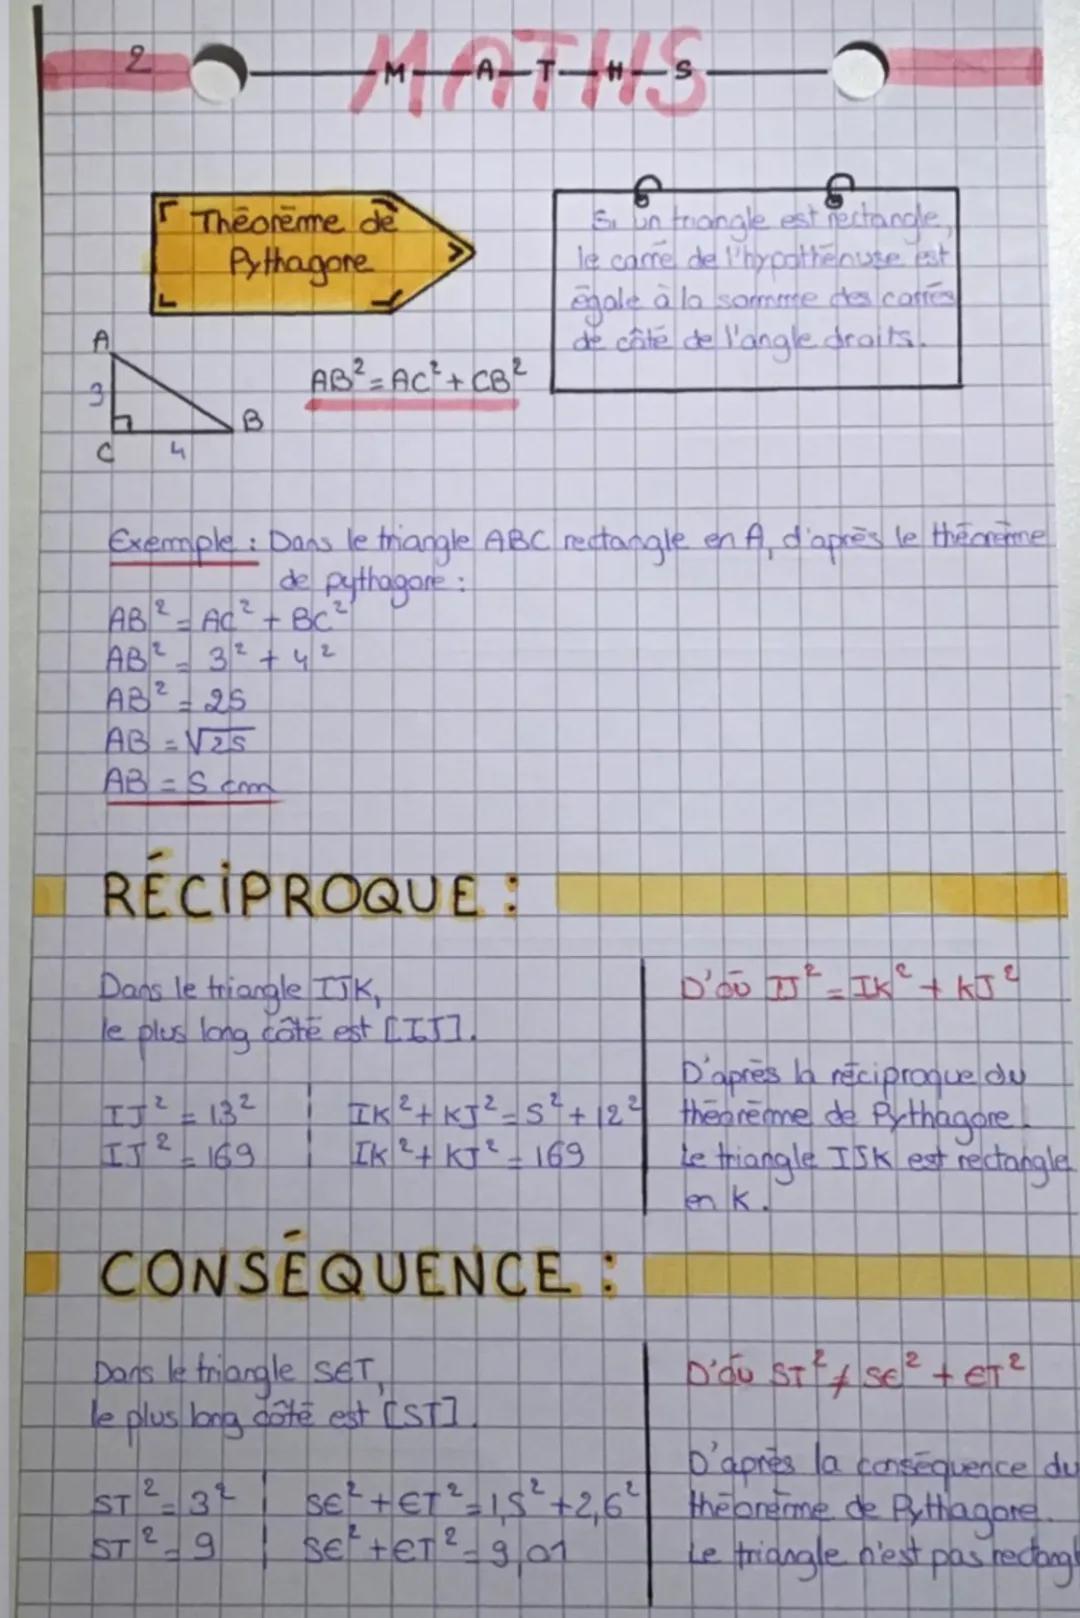 2
MATHS
M-A-T-H-S
Théorème de
Pythagore
Si un triangle est rectangle,
le carré de l'hypothénuse est
égale à la somme des carrés
de côté de l'angle droits.
A
3
C
4
B
AB² = AC² + CB²
Exemple : Dans le triangle ABC rectangle en A, d'après le théorème
de pythagore :
AB² = AC² + BC²
AB² = 3² + 4²
AB² = 25
AB = √25
AB = 5 cm
RÉCIPROQUE :
Dans le triangle IJK,
le plus long côté est [IJ].
IJ² = 13²
IJ² = 169
IK² + KJ² = 5² + 12²
IK² + KJ² = 169
D'où IJ² = IK² + KJ²
D'après la réciproque du
théorème de Pythagore.
Le triangle IJK est rectangle
en K.
CONSÉQUENCE :
Dans le triangle SET,
le plus long côté est [ST].
ST² = 3²
ST² = 9
SE² + ET² = 1,5² + 2,6²
SE² + ET² = 9,01
D'où ST² ≠ SE² + ET²
D'après la conséquence du
théorème de Pythagore.
Le triangle n'est pas rectangl